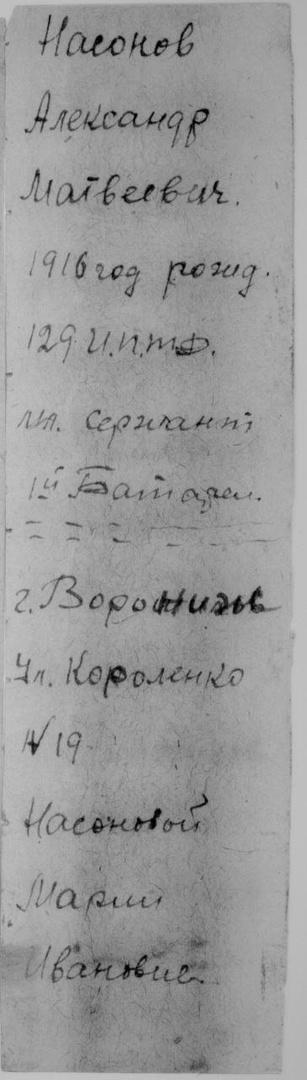 Насонов
Александр
Матвеевич.
1916 год рожд.
129 И.П.Т.Д.
мл. сержант
1й Батареи.
г. Воронижъ
Ул. Короленко
№ 19
Насоновой
Марии
Ивановне